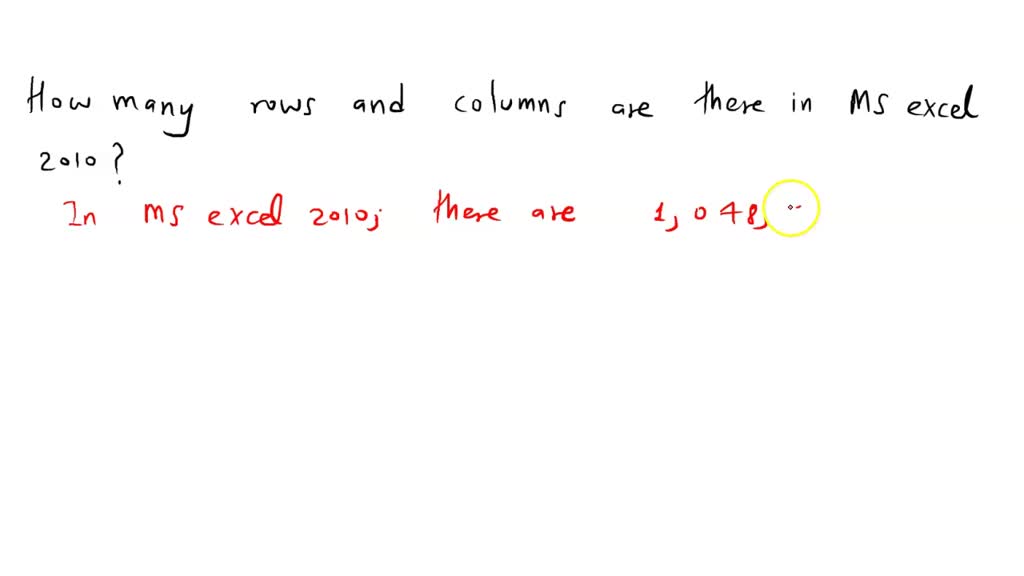 How many rows and columns are there in MS excel
2010?
In MS excel 2010, there are 1,048,